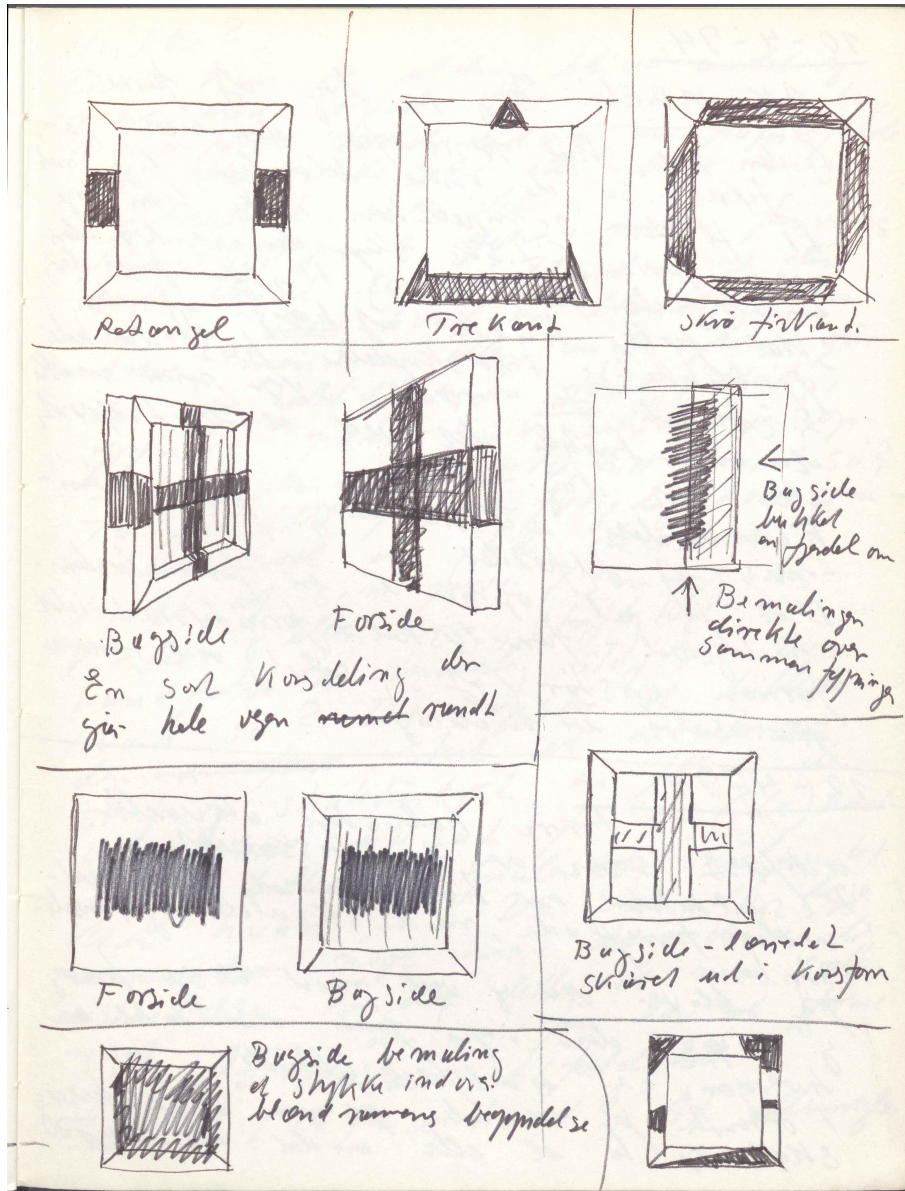 Retangel
Trekant
Skrå firkant.
Bagside
Forside
En sort Korsdeling der
går hele vejen rundt
Bagside
bukket
en fjerdel om
Bemalingen
direkte over
sammen
Forside
Bagside
Bagside - lærredet
skåret ud i Korsform
Bagside bemaling
et stykke ind på
blændrammens begyndelse